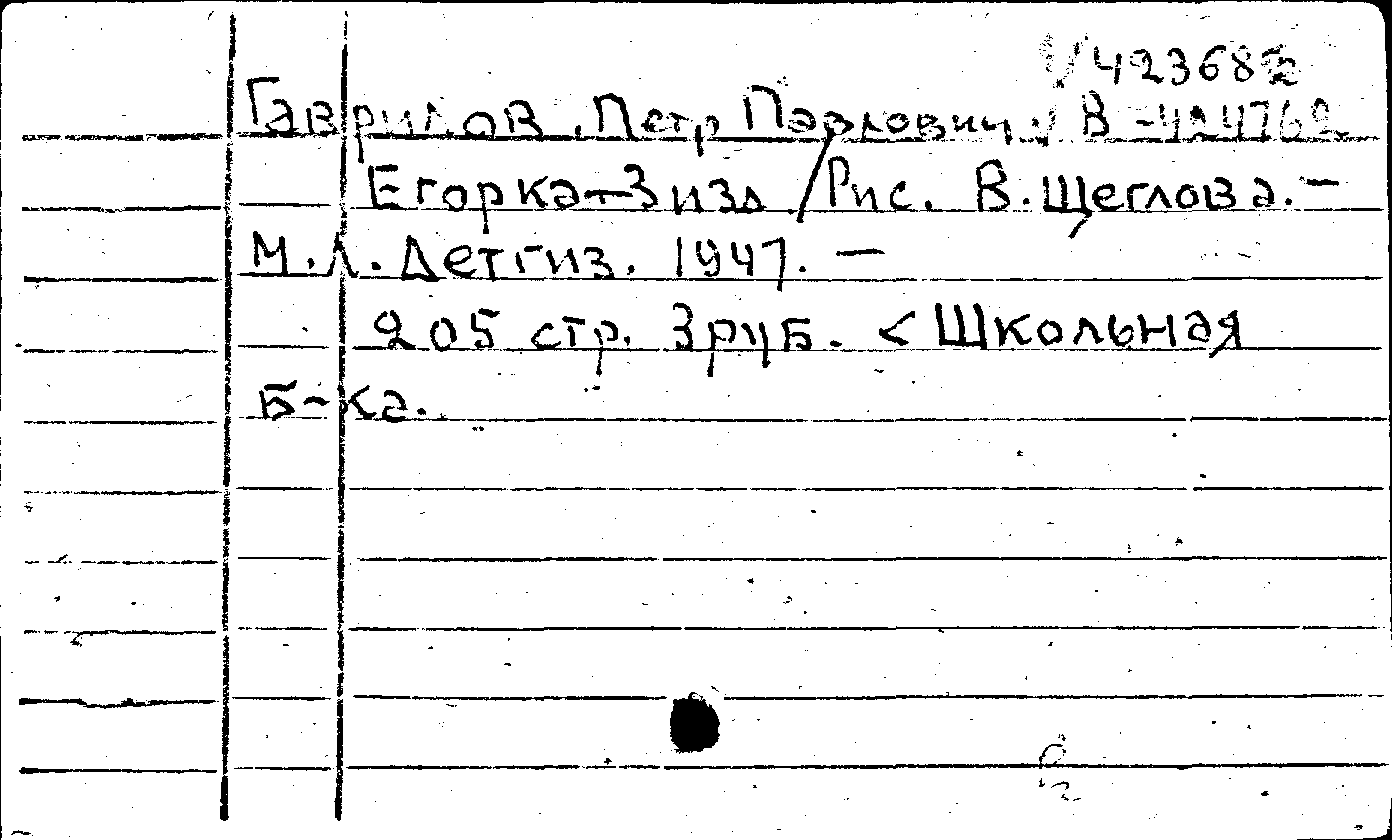 423682
Гаврилов, Петр Павлович. В-424762
Егорка-3 изд /Рис. В. Щеглова. —
М.Л. Детгиз. 1947. —
205 стр. 3 руб. < Школьная
Б-ка.